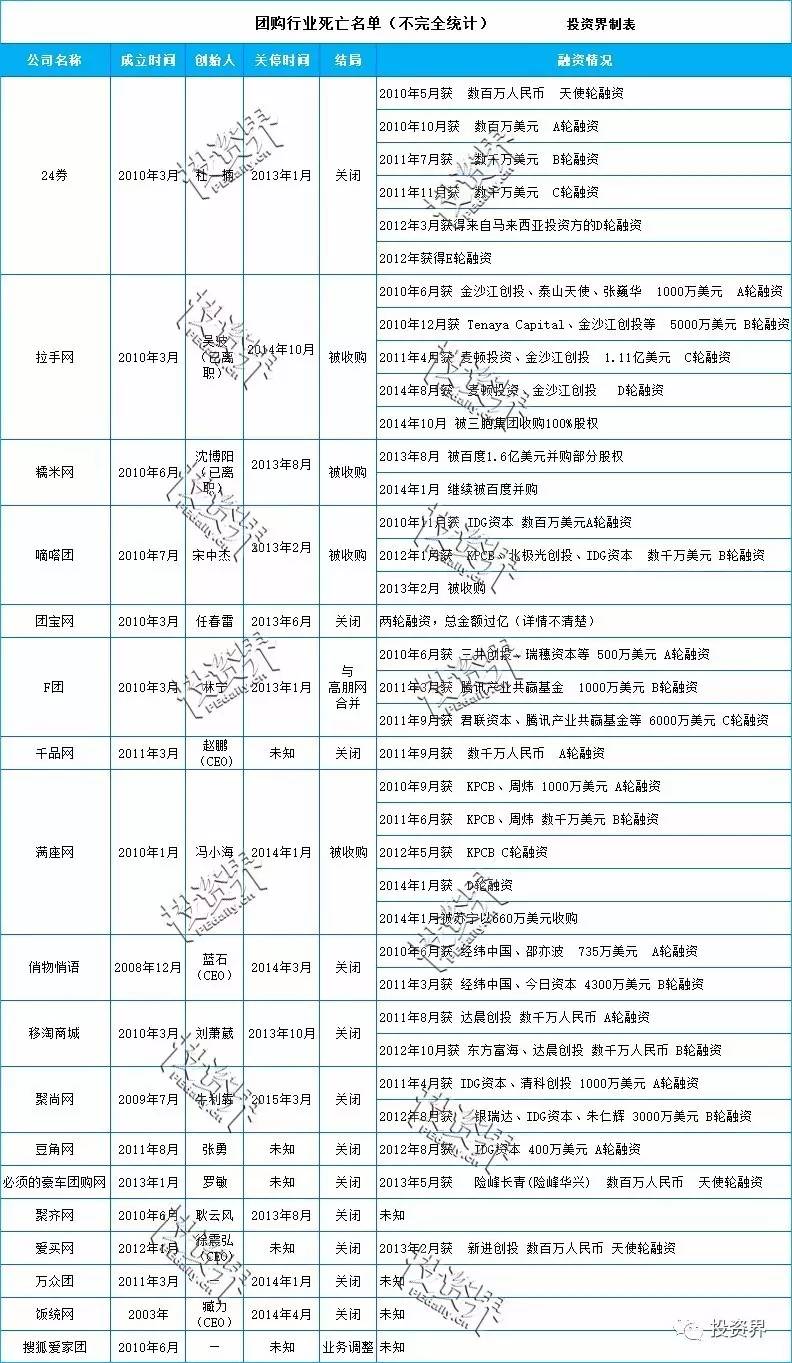 团购行业死亡名单（不完全统计） 投资界制表
公司名称 成立时间 创始人 关停时间 结局 融资情况
24券 2010年3月 杜一楠 2013年1月 关闭
2010年5月获 数百万人民币 天使轮融资
2010年10月获 数百万美元 A轮融资
2011年7月获 数千万美元 B轮融资
2011年11月获 数千万美元 C轮融资
2012年3月获得来自马来西亚投资方的D轮融资
2012年获得E轮融资
拉手网 2010年3月 吴波（已离职） 2014年10月 被收购
2010年6月获 金沙江创投、泰山天使、张巍华 1000万美元 A轮融资
2010年12月获 Tenaya Capital、金沙江创投等 5000万美元 B轮融资
2011年4月获 麦顿投资、金沙江创投 1.11亿美元 C轮融资
2014年8月获 麦顿投资、金沙江创投 D轮融资
2014年10月 被三胞集团收购100%股权
糯米网 2010年6月 沈博阳（已离职） 2013年8月 被收购
2013年8月 被百度1.6亿美元并购部分股权
2014年1月 继续被百度并购
嘀嗒团 2010年7月 宋中杰 2013年2月 被收购
2010年11月获 IDG资本 数百万美元A轮融资
2012年1月获 KPCB、北极光创投、IDG资本 数千万美元 B轮融资
2013年2月 被收购
团宝网 2010年3月 任春雷 2013年6月 关闭 两轮融资，总金额过亿（详情不清楚）
F团 2010年3月 林宁 2013年1月 与高朋网合并
2010年6月获 三井创投、瑞穗资本等 500万美元 A轮融资
2011年3月获 腾讯产业共赢基金 1000万美元 B轮融资
2011年9月获 君联资本、腾讯产业共赢基金等 6000万美元 C轮融资
千品网 2011年3月 赵鹏（CEO） 未知 关闭 2011年9月获 数千万人民币 A轮融资
满座网 2010年1月 冯小海 2014年1月 被收购
2010年9月获 KPCB、周炜 1000万美元 A轮融资
2011年6月获 KPCB、周炜 数千万美元 B轮融资
2012年5月获 KPCB C轮融资
2014年1月获 D轮融资
2014年1月被苏宁以660万美元收购
俏物悄语 2008年12月 蓝石（CEO） 2014年3月 关闭
2010年6月获 经纬中国、邵亦波 735万美元 A轮融资
2011年3月获 经纬中国、今日资本 4300万美元 B轮融资
移淘商城 2010年3月 刘萧葳 2013年10月 关闭
2011年8月获 达晨创投 数千万人民币 A轮融资
2012年10月获 东方富海、达晨创投 数千万人民币 B轮融资
聚尚网 2009年7月 2015年3月 关闭
2011年4月获 IDG资本、清科创投 1000万美元 A轮融资
2012年8月获 银瑞达、IDG资本、朱仁辉 3000万美元 B轮融资
豆角网 2011年8月 张勇 未知 关闭 2012年8月获 IDG资本 400万美元 A轮融资
必须的豪车团购网 2013年1月 罗敏 未知 关闭 2013年5月获 险峰长青(险峰华兴) 数百万人民币 天使轮融资
聚齐网 2010年6月 耿云风 2013年8月 关闭 未知
爱买网 2012年1月 徐震弘（CEO） 未知 关闭 2013年2月获 新进创投 数百万人民币 天使轮融资
万众团 2011年3月 — 2014年1月 关闭 未知
饭统网 2003年 臧力（CEO） 2014年4月 关闭 未知
搜狐爱家团 2010年6月 — 未知 业务调整 未知
投资界
PEdaily.cn
投资界